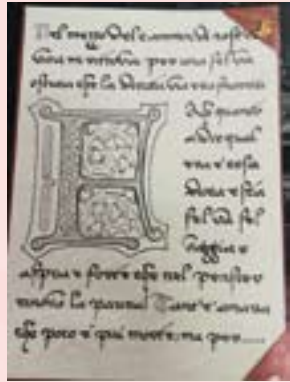 Nel mezzo del cammin di nostra
vita mi ritrovai per una selva
oscura che la diritta via era smarrita
Ahi quanto
a dir qual
era è cosa
dura esta
selva sel
vaggia e
aspra e forte che nel pensier
la paura! Tant'è amara
che poco è più morte; ma per.....